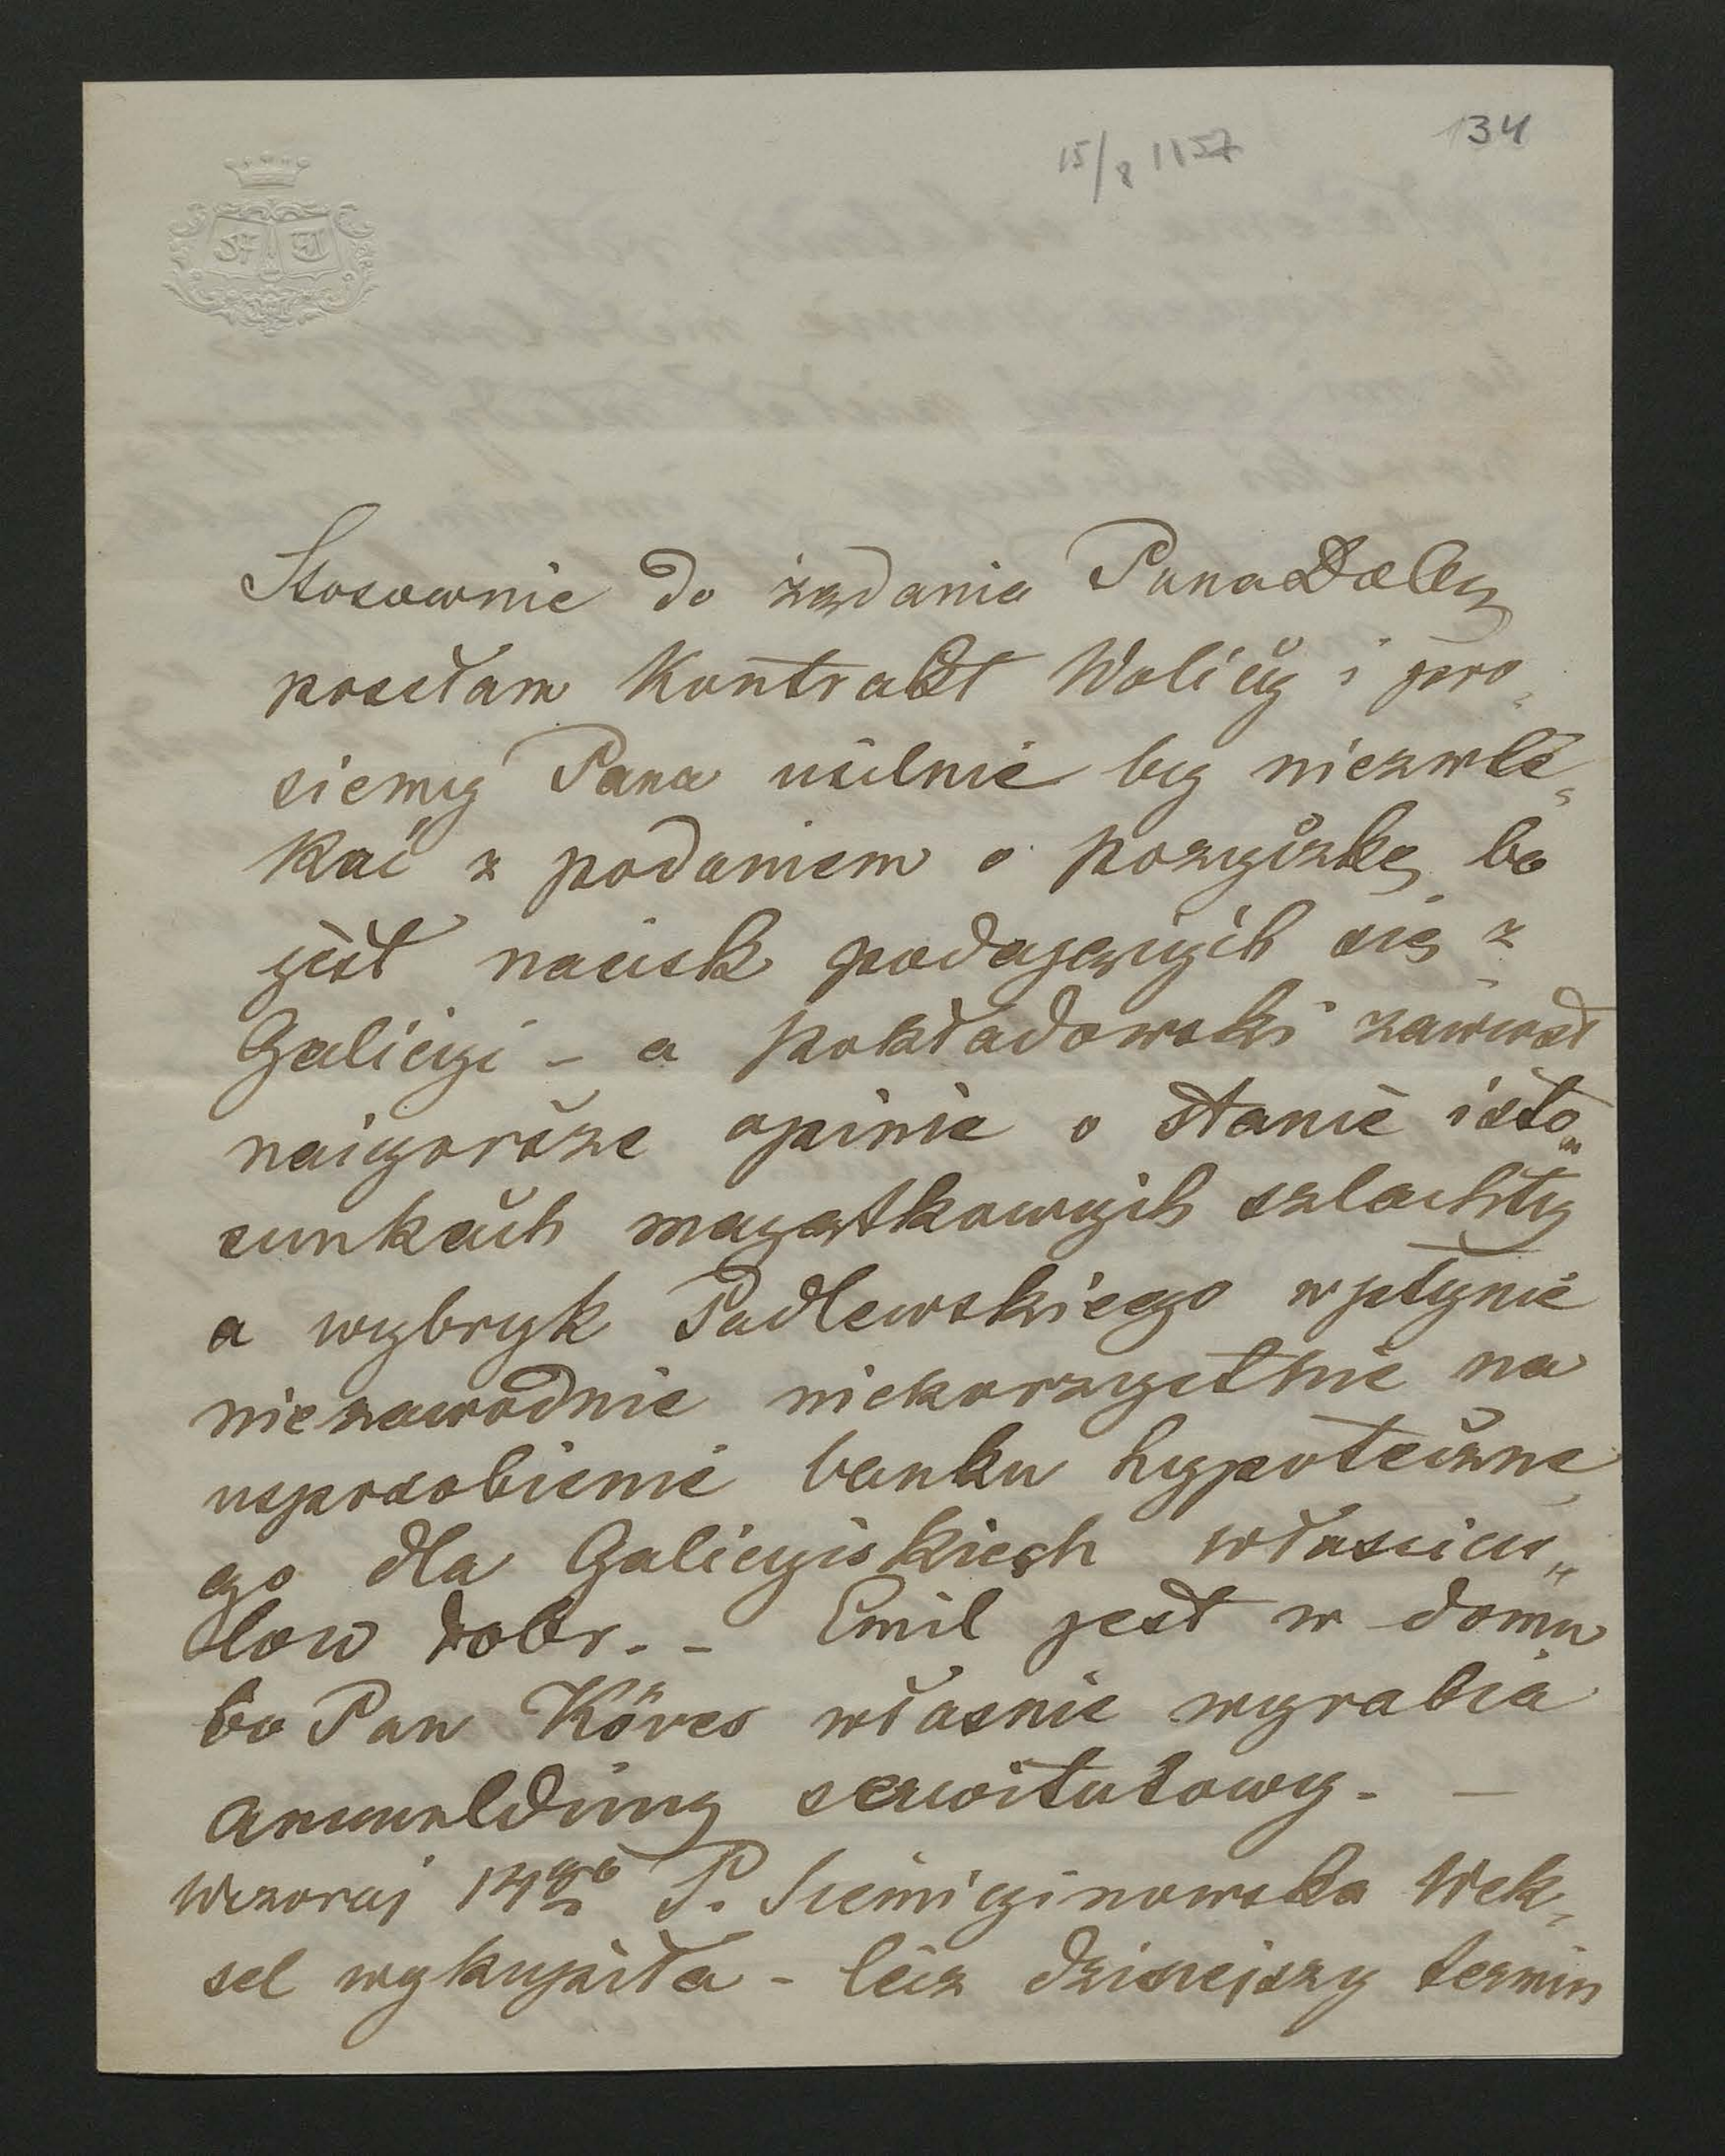 134
15/8 1857
Stosownie do żądania Pana Dob
posełam Kontrakt Wolicy i pro„
siemy Pana usilnie by niezwle„
kać z podaniem o pożyczkę bo
jest nacisk podających się z
Galicyi – a Pokładowski zawiózł
naigorsze opinie o stanie i sto„
sunkach majątkowych szlachty
a wybryk Padlewskiego wpłynie
niezawodnie niekorzystnie na
usposobienie banku hypoteczne„
go dla Galicyiskiech właścicie„
low dobr. – Emil jest w domu
bo Pan Köves własnie wyrabia
anmeldung serwitutowy. –
Wczoraj 14go P. Siemiginowska Wek„
sel wykupiła – lecz dzisiejszy termin